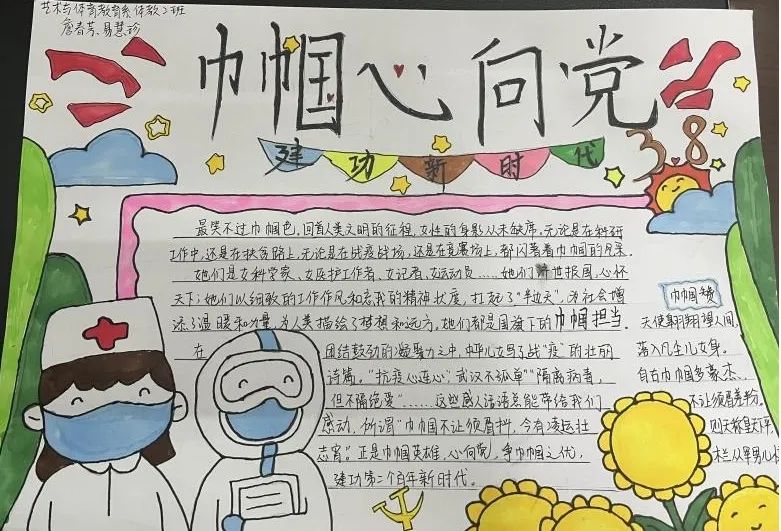 艺术与体育教育系体教2班
詹春芳、易慧珍
巾帼心向党
建功新时代
3.8
最美不过巾帼色，回首人类文明的征程，女性的身影从未缺席，无论是在科研
工作中，还是在扶贫路上，无论是在战疫战场，还是在竞赛场上，都闪着着巾帼的光采
她们是女科学家、女医护工作者、女记者、女运动员……她们 世报国，心怀
天下；她们以细致的工作作风和忘我的精神状度，扛起了“半边天”，为社会增
添了温暖和力量，为人类描绘了梦想和远方，她们都是国旗下的巾帼担当．
在 团结鼓劲的凝聚力之中，中华儿女写了战“疫”的壮丽
诗篇。“抗疫人连心”“武汉不孤单”“隔离病毒，
但不隔绝爱”……这些感人话语总能带给我们
感动，所谓“巾帼不让须眉抖，今有凌运壮
志宵”正是巾帼英雄，心向党，争巾帼之优，
建功第二个百年新时代．
巾帼赞
天使翱翔望人间，
落入凡尘儿女身．
自古巾帼多豪杰，
不让须眉半粉．
则天称皇天下，
栏从军男儿